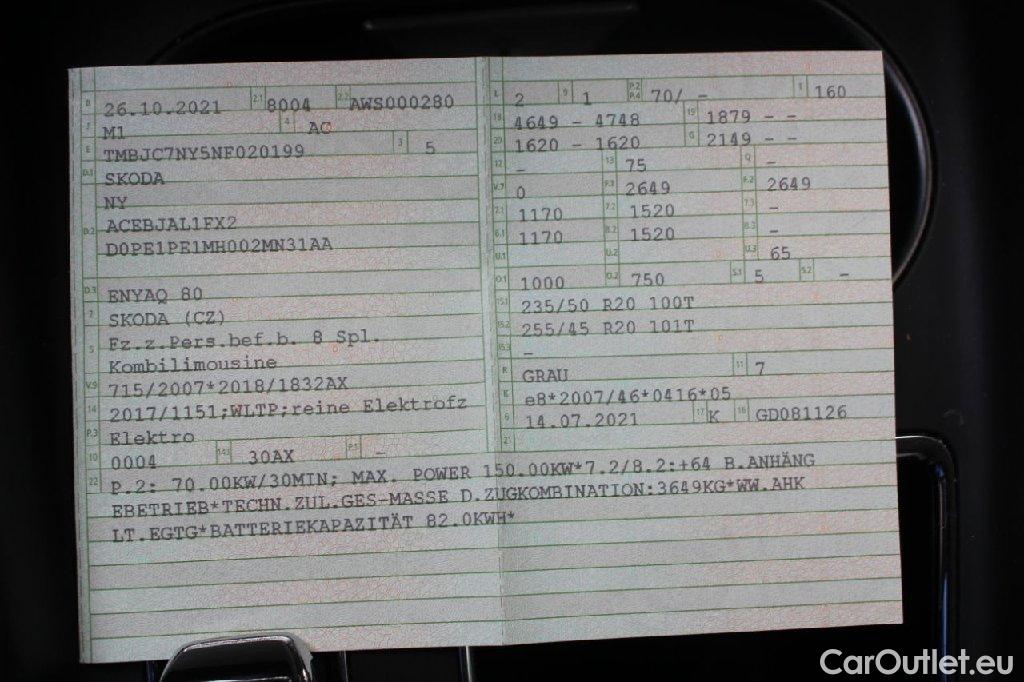 B 26.10.2021 2.1 8004 2.2 AWS000280
J M1 4 AC
E TMBJC7NY5NF020199 3 5
D.1 SKODA
NY
D.2 ACEBJAL1FX2
D0PE1PE1MH002MN31AA
D.3 ENYAQ 80
2 SKODA (CZ)
5 Fz.z.Pers.bef.b. 8 Spl.
Kombilimousine
V.9 715/2007*2018/1832AX
14 2017/1151;WLTP;reine Elektrofz
P.3 Elektro
10 0004 14.1 30AX P.1 -
L 2 9 1 P.2 P.4 70/ - T 160
18 4649 - 4748 19 1879 - -
20 1620 - 1620 G 2149 - -
12 - 13 75 Q -
V.7 0 F.1 2649 F.2 2649
7.1 1170 7.2 1520 7.3 -
8.1 1170 8.2 1520 8.3 -
U.1 U.2 U.3 65
O.1 1000 O.2 750 S.1 5 S.2 -
15.1 235/50 R20 100T
15.2 255/45 R20 101T
15.3 -
R GRAU 11 7
K e8*2007/46*0416*05
6 14.07.2021 17 K 16 GD081126
21
22 P.2: 70.00KW/30MIN; MAX. POWER 150.00KW*7.2/8.2:+64 B.ANHÄNG
EBETRIEB*TECHN.ZUL.GES-MASSE D.ZUGKOMBINATION:3649KG*WW.AHK
LT.EGTG*BATTERIEKAPAZITÄT 82.0KWH*
CarOutlet.eu